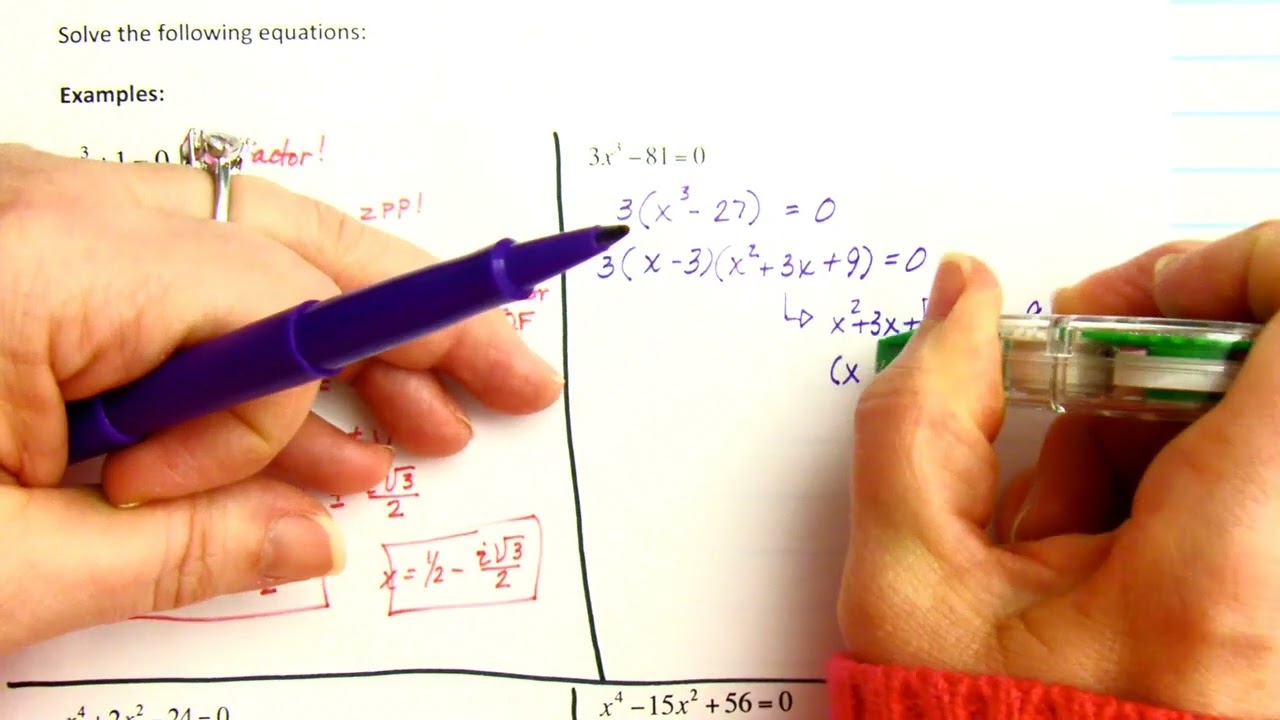 Solve the following equations:
Examples:
3 + 1 = 0 actor!
ZPP!
or
QF
i√3/2
x = 1/2 - i√3/2
2
3x³ - 81 = 0
3(x³ - 27) = 0
3(x - 3)(x² + 3x + 9) = 0
↳ x² + 3x +
(x
x⁴ + 2x² - 24 = 0
x⁴ - 15x² + 56 = 0